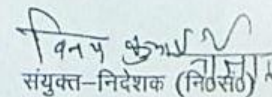 विनय कुमार
संयुक्त-निदेशक (नि०से०)